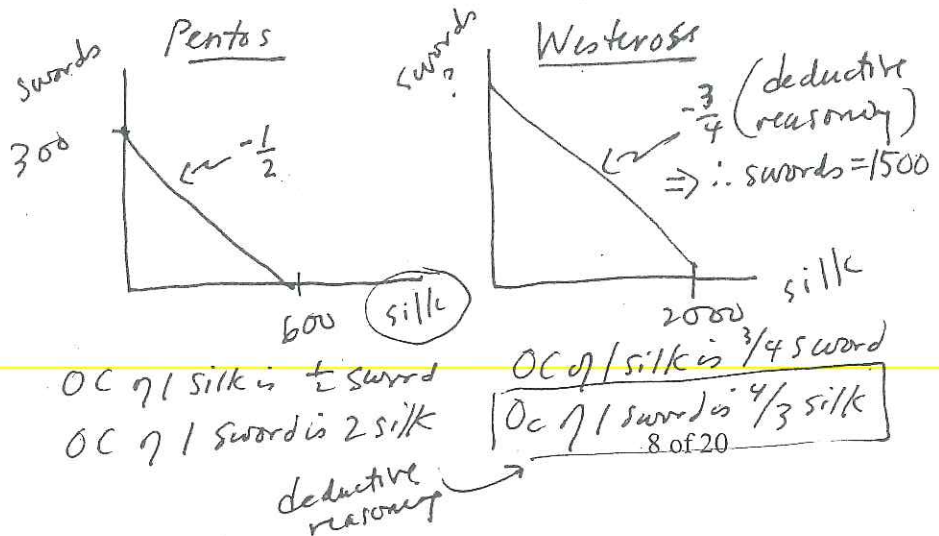 Pentos
swords
300
-1/2
600
silk
OC of 1 silk is 1/2 sword
OC of 1 sword is 2 silk
Westeross
swords
?
-3/4 (deductive reasoning)
⇒ ∴ swords = 1500
2000
silk
OC of 1 silk is 3/4 sword
OC of 1 sword is 4/3 silk
8 of 20
deductive
reasoning